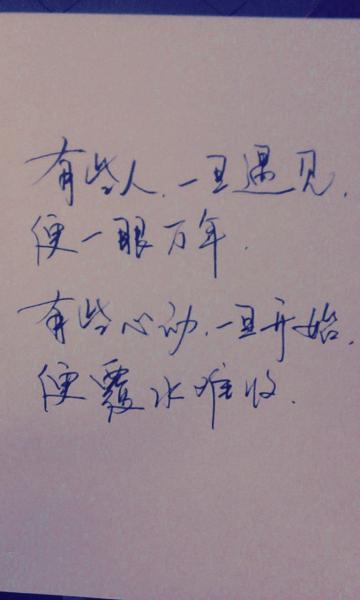 有些人.一旦遇见.
便一眼万年.
有些心动.一旦开始.
便覆水难收.